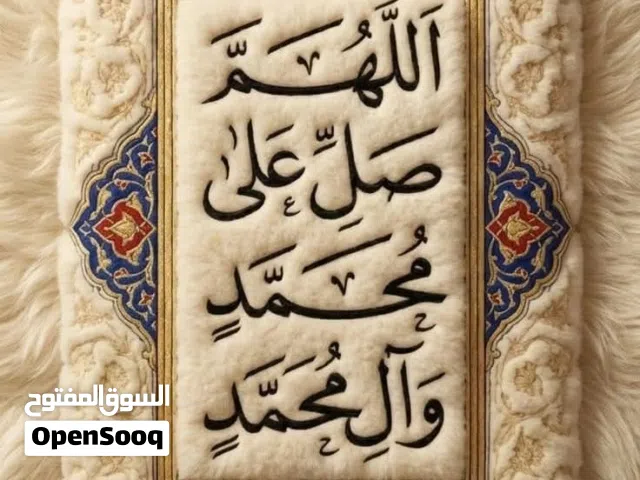 اَللَّهُمَّ
صَلِّ عَلىٰ
مُحَمَّدٍ
وَآلِ مُحَمَّدٍ
السوق المفتوح
OpenSooq